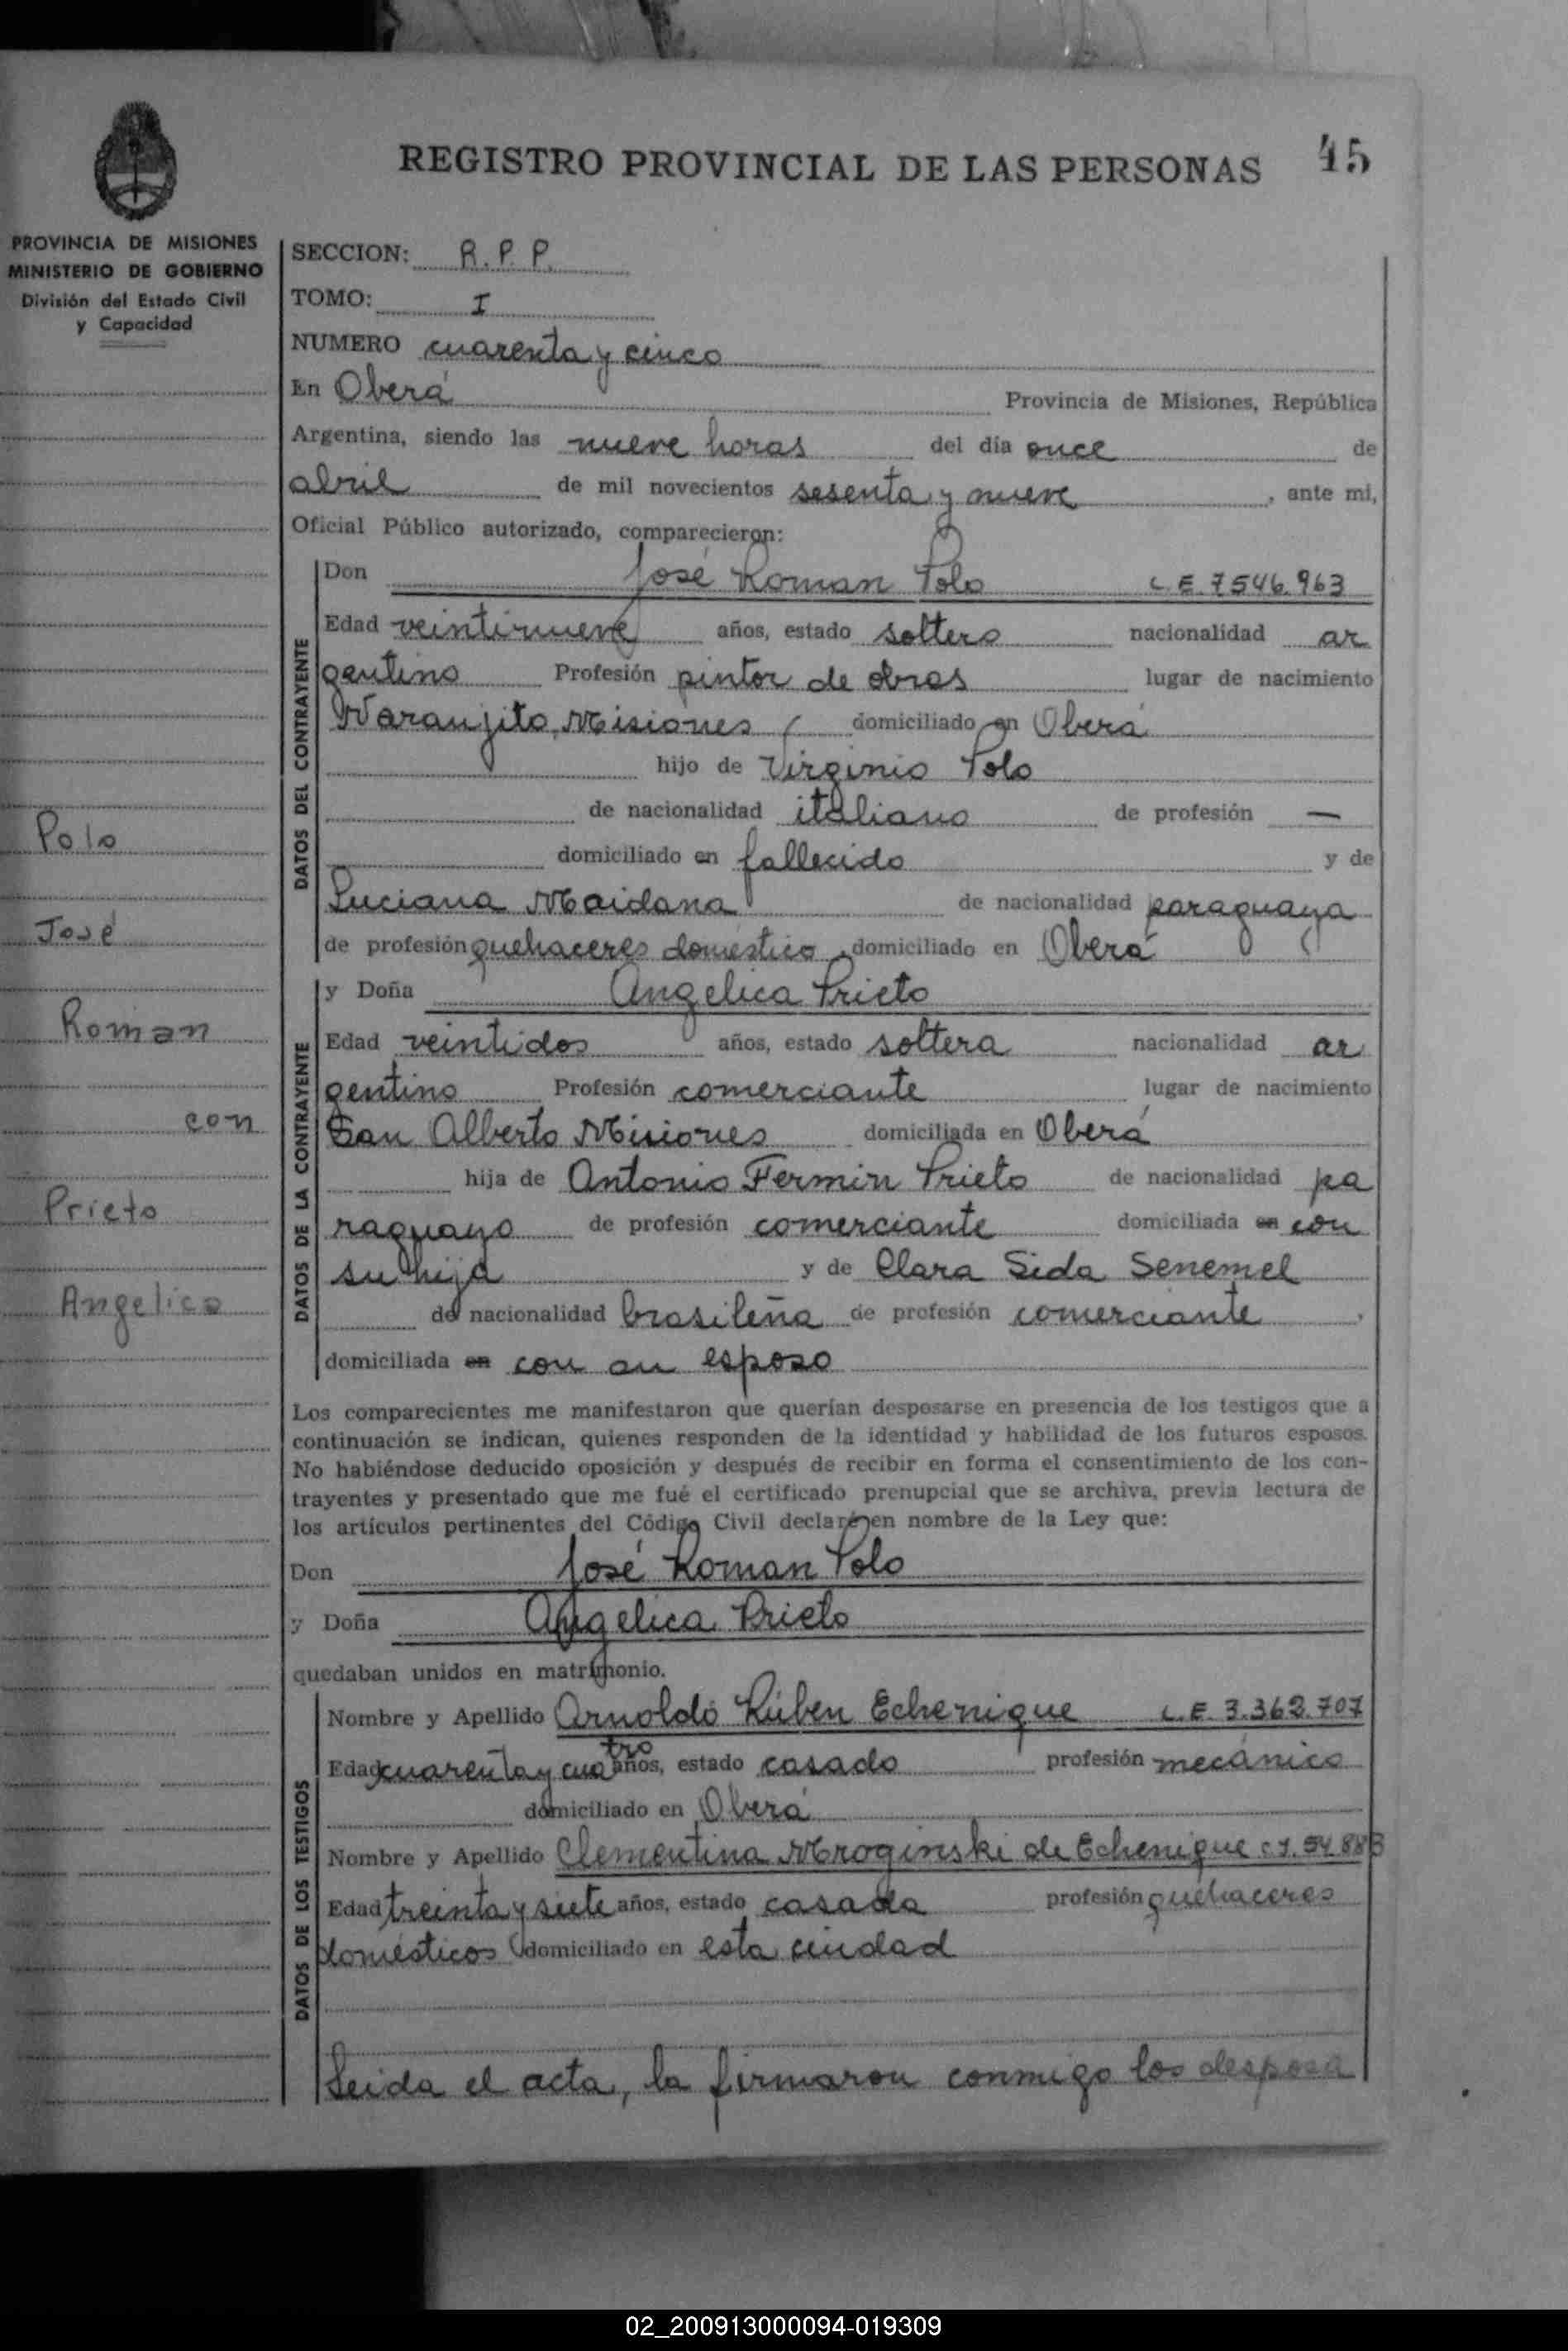 REGISTRO PROVINCIAL DE LAS PERSONAS 45
PROVINCIA DE MISIONES
MINISTERIO DE GOBIERNO
División del Estado Civil
y Capacidad
Polo
José
Roman
con
Prieto
Angelica
SECCION: R. P. P.
TOMO: I
NUMERO cuarenta y cinco
En Oberá Provincia de Misiones, República
Argentina, siendo las nueve horas del día once de
abril de mil novecientos sesenta y nueve, ante mi,
Oficial Público autorizado, comparecieron:
DATOS DEL CONTRAYENTE
Don José Roman Polo L.E. 7546.963
Edad veintinueve años, estado soltero nacionalidad ar
gentino Profesión pintor de obras lugar de nacimiento
Naranjito, Misiones, domiciliado en Oberá
hijo de Virginio Polo
de nacionalidad italiano de profesión —
domiciliado en fallecido y de
Luciana Maidana de nacionalidad paraguaya
de profesión quehaceres doméstico, domiciliado en Oberá
DATOS DE LA CONTRAYENTE
y Doña Angelica Prieto
Edad veintidos años, estado soltera nacionalidad ar
gentino Profesión comerciante lugar de nacimiento
San Alberto Misiones domiciliada en Oberá
hija de Antonio Fermin Prieto de nacionalidad pa
raguayo de profesión comerciante domiciliada en con
su hija y de Clara Sida Senemel
de nacionalidad brasileña de profesión comerciante,
domiciliada en con su esposo
Los comparecientes me manifestaron que querían desposarse en presencia de los testigos que a
continuación se indican, quienes responden de la identidad y habilidad de los futuros esposos.
No habiéndose deducido oposición y después de recibir en forma el consentimiento de los con-
trayentes y presentado que me fué el certificado prenupcial que se archiva, previa lectura de
los artículos pertinentes del Código Civil declaré en nombre de la Ley que:
Don José Roman Polo
y Doña Angelica Prieto
quedaban unidos en matrimonio.
DATOS DE LOS TESTIGOS
Nombre y Apellido Arnoldo Rúben Echenique L.E. 3.362.707
Edad cuarenta y cuatro años, estado casado profesión mecánico
domiciliado en Oberá
Nombre y Apellido Clementina Mroginski de Echenique C.I. 54.883
Edad treinta y siete años, estado casada profesión quehaceres
domésticos domiciliado en esta ciudad
Leida el acta, la firmaron conmigo los desposa
02_200913000094-019309